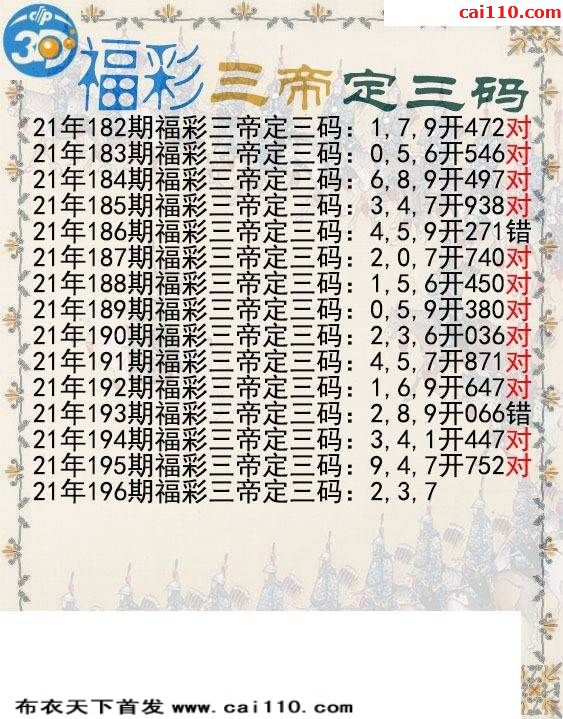 cai110.com
3D
福彩三帝定三码
21年182期福彩三帝定三码：1,7,9开472对
21年183期福彩三帝定三码：0,5,6开546对
21年184期福彩三帝定三码：6,8,9开497对
21年185期福彩三帝定三码：3,4,7开938对
21年186期福彩三帝定三码：4,5,9开271错
21年187期福彩三帝定三码：2,0,7开740对
21年188期福彩三帝定三码：1,5,6开450对
21年189期福彩三帝定三码：0,5,9开380对
21年190期福彩三帝定三码：2,3,6开036对
21年191期福彩三帝定三码：4,5,7开871对
21年192期福彩三帝定三码：1,6,9开647对
21年193期福彩三帝定三码：2,8,9开066错
21年194期福彩三帝定三码：3,4,1开447对
21年195期福彩三帝定三码：9,4,7开752对
21年196期福彩三帝定三码：2,3,7
布衣天下首发 www.cai110.com